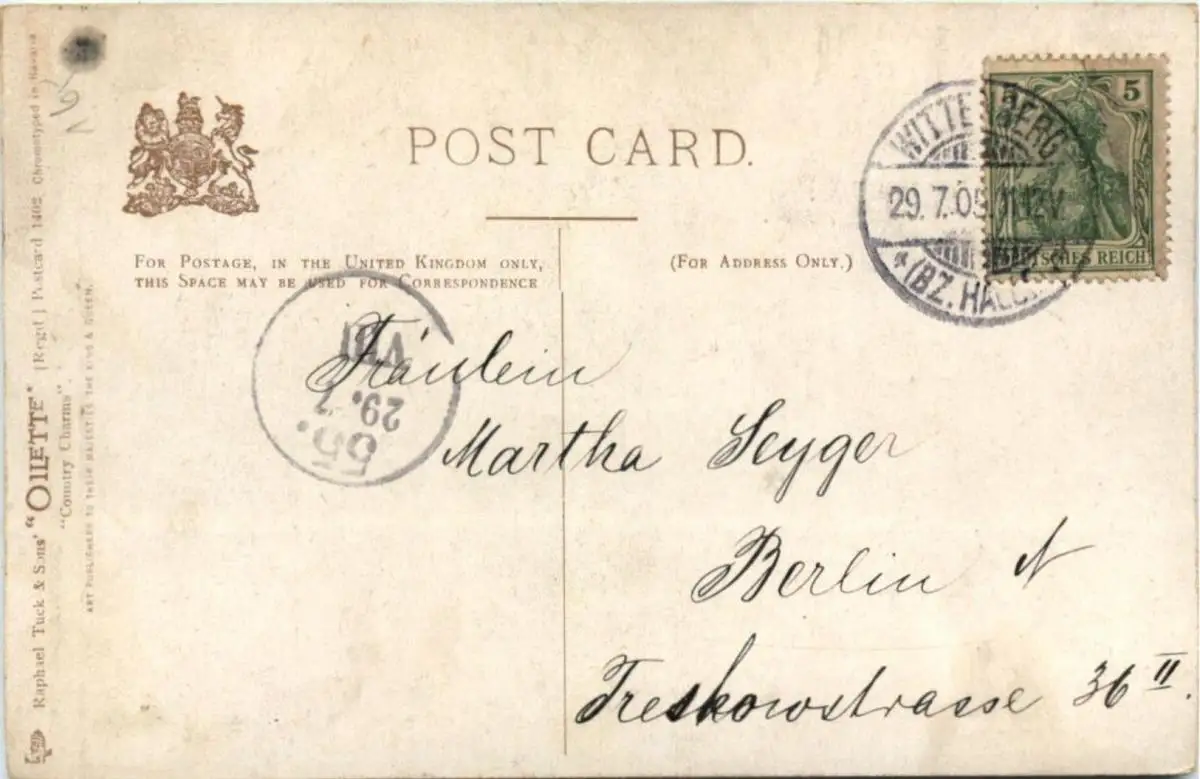 POST CARD.
FOR POSTAGE, IN THE UNITED KINGDOM ONLY,
THIS SPACE MAY BE USED FOR CORRESPONDENCE
(FOR ADDRESS ONLY.)
5
DEUTSCHES REICH
WITTENBERG
29. 7. 05. 11-12V
* (BZ. HALLE)
29. 7.
55.
Fräulein
Martha Seyger
Berlin N
Treskowstrasse 36 II.
Raphael Tuck & Sons' "OILETTE" [Regd.] Postcard 1402. Chromotyped in Bavaria
"Country Charms".
ART PUBLISHERS TO THEIR MAJESTIES THE KING & QUEEN.